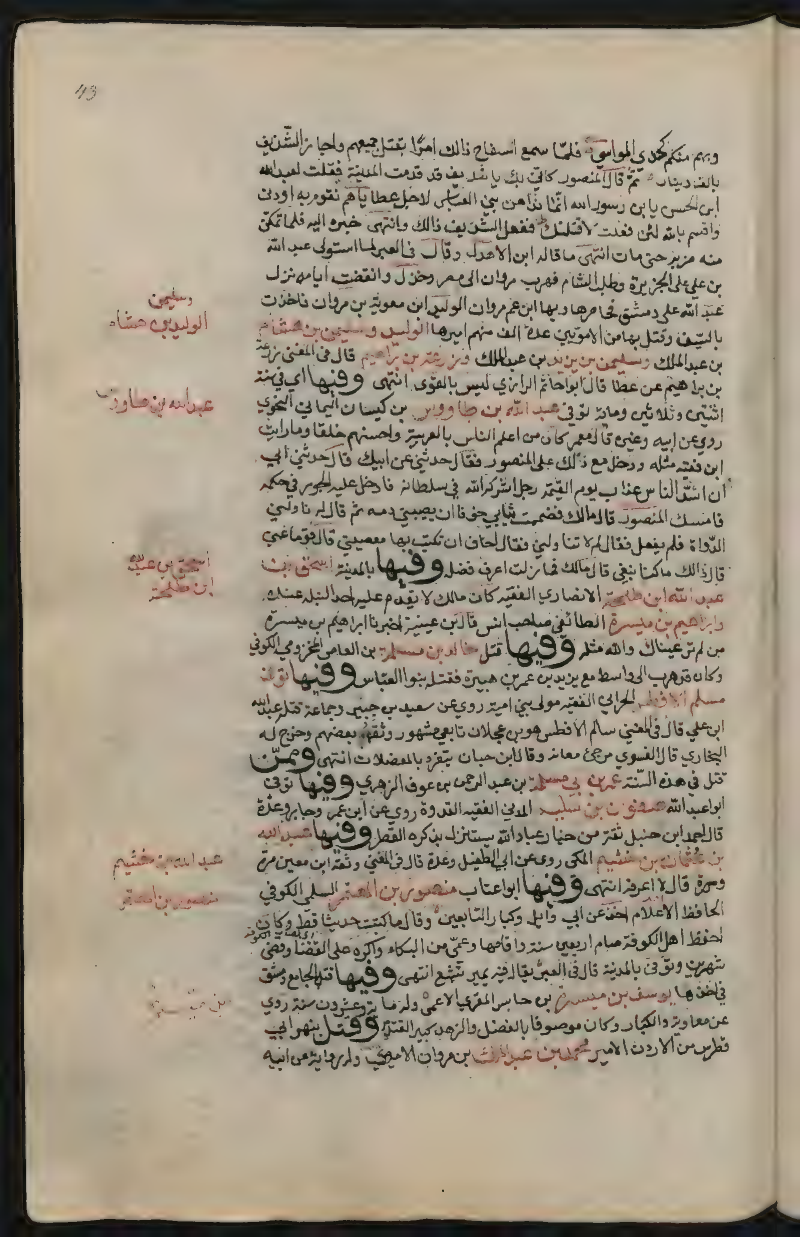 43
وبهم منكم كحدي المواسي فلما سمع السفاح ذالك امر بقتل جميعهم واجاز الشريف
بالف دينار ثم قال المنصور كاني بك يا شريف قد قدمت المدينة فقلت لعبد الله
ابن الحسن يا بن رسول الله انما نداهن بني العباس لاجل عطاياهم نقوم به اودنا
واقسم بالله لئن فعلت لاقتلنك ففعل الشريف ذالك وانتهى خبره اليه فلما تمكن
منه ضربه حتى مات انتهى ما قاله ابن الاهدل وقال في العبر لما استولى عبد الله
بن علي على الجزيرة وطلب الشام فهرب مروان الى مصر وخذل وانقضت ايامه نزل
عبد الله على دمشق فحاصرها وبها ابن عم مروان الوليد ابن معوية بن مروان فاخذت
بالسيف وقتل بها من الامويين عدة الف منهم اميرها الوليد وسليمن بن هشام
بن عبد الملك وسليمن بن يزيد بن عبد الملك وزرعة بن ابراهيم قال في المغني زرعة
بن براهيم عن عطا قال ابو حاتم الرازي ليس بالقوى انتهى وفيها اي في سنة
اثنتين وثلاثين وماية توفي عبد الله بن طاووس بن كيسان اليماني النحوي
روى عن ابيه وغيره قال معمر كان من اعلم الناس بالعربية واحسنهم خلقا وما رايت
ابن فقيه مثله ودخل مع مالك على المنصور فقال حدثني عن ابيك قال حدثني ابي
ان اشد الناس عذاب يوم القيمة رجل اشركه الله في سلطانه فادخل عليه الجور في حكمه
فامسك المنصور قال مالك فضممت ثيابي خوفا ان يصيبني دمه ثم قال له ناولني
الدواة فلم يفعل فقال لم لا تناولني فقال اخاف ان تكتب بها معصية قال قوما عني
قال ذالك ما كنا نبغي قال مالك فما زلت اعرف فضله وفيها بالمدينة اسحق بن
عبد الله ابن طلحة الانصاري الفقيه كان مالك لا يقدم عليه احد النبله عنده
وابراهيم بن ميسرة الطائفي صاحب انس قال بن عيينة اخبرنا ابراهيم بن ميسرة
من لم تر عيناك والله مثله وفيها قتل خالد بن مسلمة بن العاص المخزومي الكوفي
وكان قد هرب الى واسط مع يزيد بن عمر بن هبيرة فقتله بنوا العباس وفيها توفي
مسلم الافطس الحراني الفقيه مولى بني امية روى عن سعيد بن جبير وجماعة قتله عبد الله
ابن علي قال في المغني سالم الافطس هو بن عجلان تابعي مشهور وثقه بعضهم وخرج له
البخاري قال الفسوي مرجئ معاند وقال ابن حبان يتفرد بالمعضلات انتهى وممن
قتل في هذه السنة عمر بن ابي مسلمة بن عبد الرحمن بن عوف الزهري وفيها توفي
ابو عبد الله صفوان بن سليم المدني الفقيه القدوة روى عن ابن عمر وجابر وعدة
قال احمد ابن حنبل ثقة من خيار عباد الله يستنزل بذكره القطر وفيها عبد الله
بن عثمان بن خثيم المكي روى عن ابي الطفيل وعدة قال في المغني وثقه ابن معين مرة
ومرة قال لا اعرفه انتهى وفيها ابو اعتاب منصور بن المعتمر السلمي الكوفي
الحافظ الاعلام اخذ عن ابي وائل وكبار التابعين وقال ما كتبت حديثا قط وكان
احفظ اهل الكوفة صام اربعين سنة وقامها وعمي من البكاء واكره على القضا فقضى
شهرين وتوفي بالمدينة قال في العبر يقال فيه يسير تشيع انتهى وفيها قتل بجامع دمشق
في اخذها يوسف بن ميسرة بن حلبس المقري الاعمى وله ماية وعشرون سنة روى
عن معاوية والكبار وكان موصوفا بالفضل والزهد كبير القدر وقتل بنهر ابي
فطرس من الاردن الامير محمد بن عبد الملك بن مروان الاموي وله رواية عن ابيه
وسليمن
الوليد بن هشام
عبد الله بن طاووس
اسحق بن عبد الله
ابن طلحة
عبد الله بن خثيم
منصور بن المعتمر